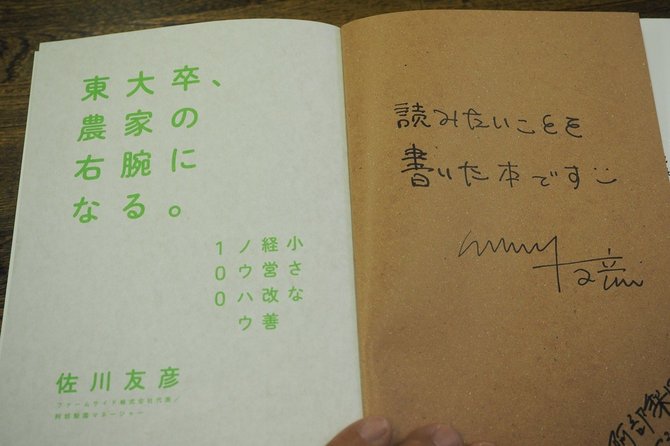 東大卒、
農家の
右腕に
なる。
小さな
経営改善
ノウハウ
100
佐川友彦
ファームサイド株式会社代表/
阿部梨園マネージャー
読みたいことを
書いた本です
阿部梨